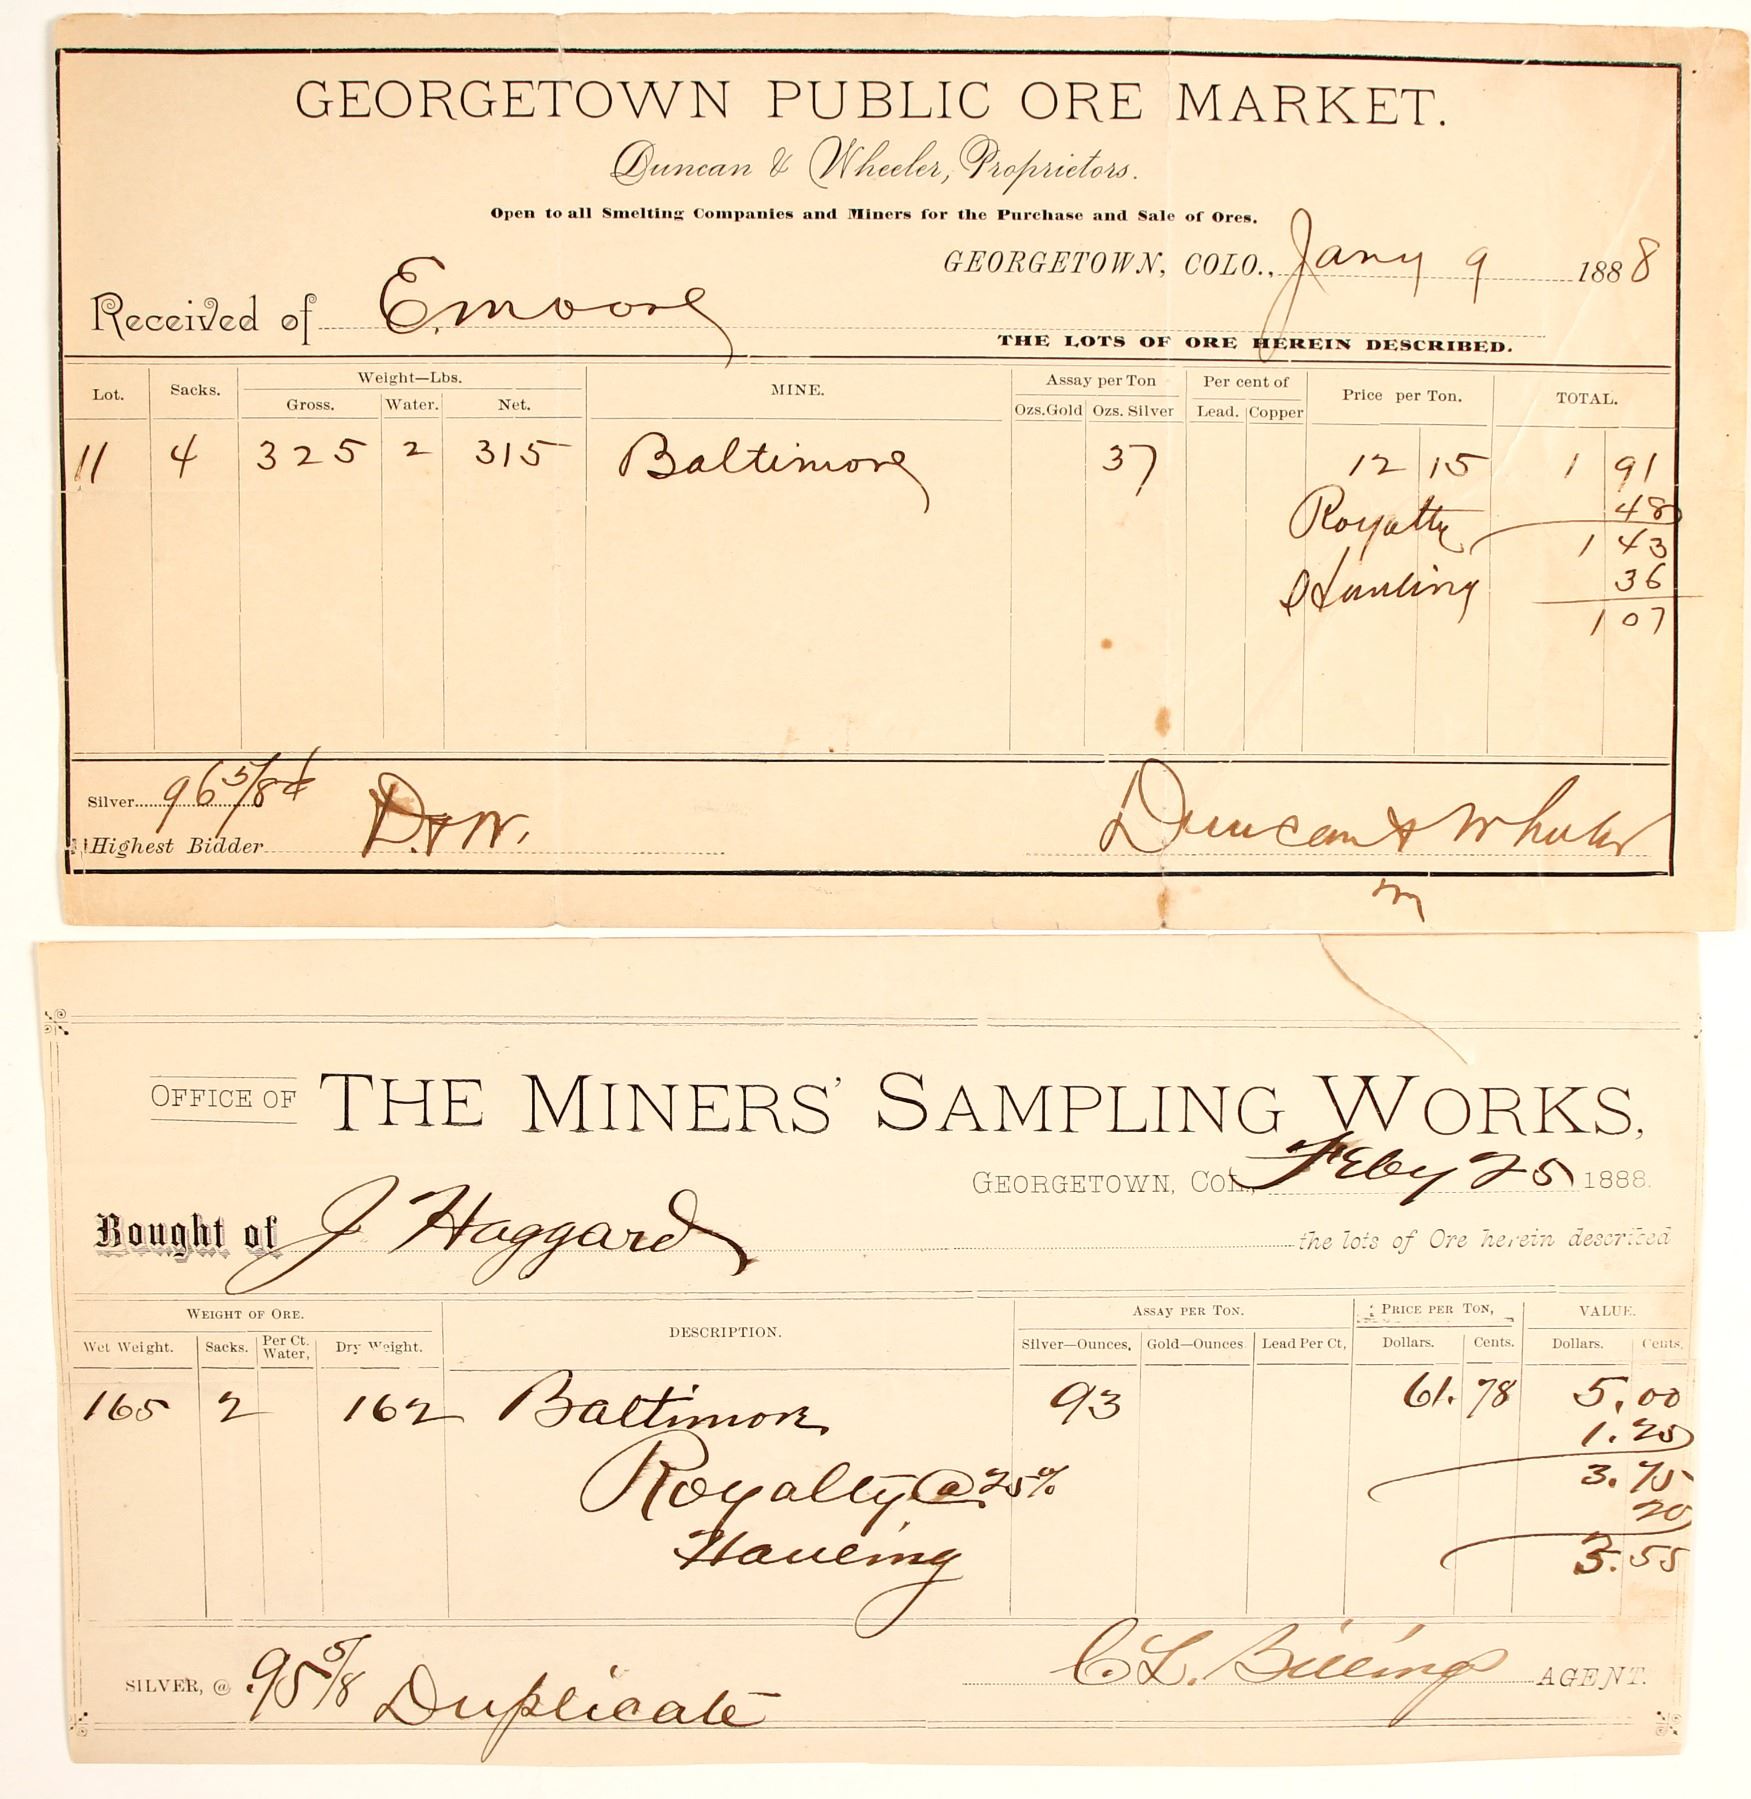 GEORGETOWN PUBLIC ORE MARKET.
Duncan & Wheeler, Proprietors.
Open to all Smelting Companies and Miners for the Purchase and Sale of Ores.
GEORGETOWN, COLO., Jany 9 1888
Received of E. Moore
THE LOTS OF ORE HEREIN DESCRIBED.
Lot. Sacks. Weight—Lbs. MINE. Assay per Ton Per cent of Price per Ton. TOTAL.
Gross. Water. Net. Ozs. Gold Ozs. Silver Lead. Copper
11 4 325 2 315 Baltimore 37 12 15 1 91
Royalty 48
1 43
Hauling 36
1 07
Silver 96 5/8 ¢
Highest Bidder D. & W. Duncan & Wheeler
m
OFFICE OF THE MINERS' SAMPLING WORKS,
GEORGETOWN, COL., Feby 25 1888.
Bought of J Haggard the lots of Ore herein described
WEIGHT OF ORE. DESCRIPTION. ASSAY PER TON. PRICE PER TON, VALUE.
Wet Weight. Sacks. Per Ct. Water, Dry Weight. Silver—Ounces, Gold—Ounces Lead Per Ct, Dollars. Cents. Dollars. Cents,
165 2 162 Baltimore 93 61. 78 5.00
1.25
Royalty @ 25% 3.75
20
Hauling 3.55
SILVER, @ .95 5/8 Duplicate C. L. Billings AGENT.